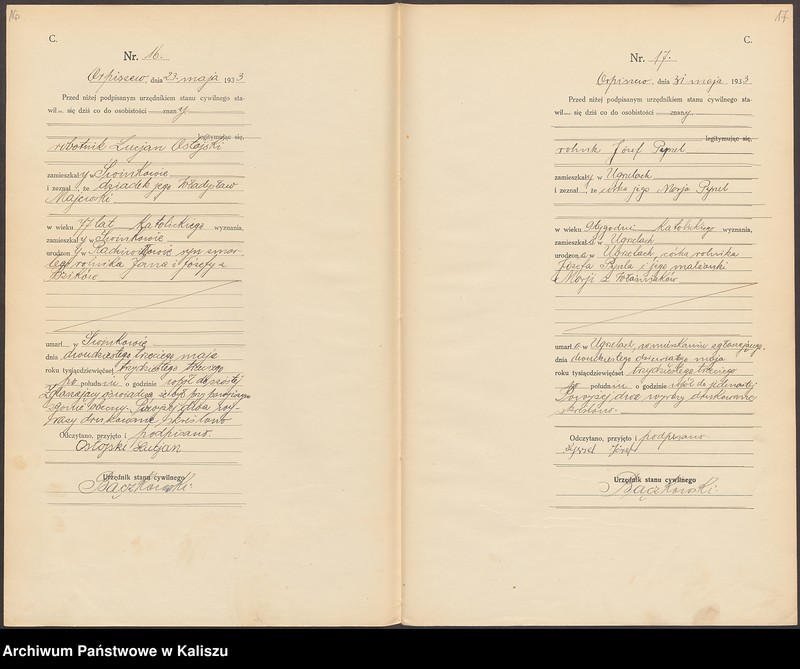 16
C.
Nr. 16.
Orpiszew, dnia 23. maja 1933
Przed niżej podpisanym urzędnikiem stanu cywilnego sta-
wił się dziś co do osobistości znany
legitymując się,
robotnik Lucjan Ostojski
zamieszkały w
i zeznał, że dziadek jego Władysław
Majewski
w wieku 77 lat Katolickiego wyznania,
zamieszkały w
urodzony w syn zmar-
łego rolnika Jana i Józefy z
umarł w
dnia dwudziestego trzeciego maja
roku tysiącdziewięćset trzydziestego trzeciego
po południu o godzinie wpół do szóstej
Zeznający oświadcza, że był przy
zgonie obecny. Powyżej dwa wy-
razy drukowane skreślono
Odczytano, przyjęto i podpisano
Ostojski Lucjan
Urzędnik stanu cywilnego
Bączkowski
17
C.
Nr. 17.
Orpiszew, dnia 31 maja 1933
Przed niżej podpisanym urzędnikiem stanu cywilnego sta-
wił się dziś co do osobistości znany
legitymując się,
rolnik Józef
zamieszkały w Ugrzelach
i zeznał, że córka jego Marja
w wieku 9 tygodni Katolickiego wyznania,
zamieszkała w Ugrzelach
urodzona w Ugrzelach, córka rolnika
Józefa i jego małżonki
Marji z
umarła w Ugrzelach, w mieszkaniu zgłaszającego,
dnia dwudziestego dziewiątego maja
roku tysiącdziewięćset trzydziestego trzeciego
po południu o godzinie wpół do jedenastej
Powyżej dwa wyrazy drukowane
skreślono.
Odczytano, przyjęto i podpisano
Józef
Urzędnik stanu cywilnego
Bączkowski
Archiwum Państwowe w Kaliszu